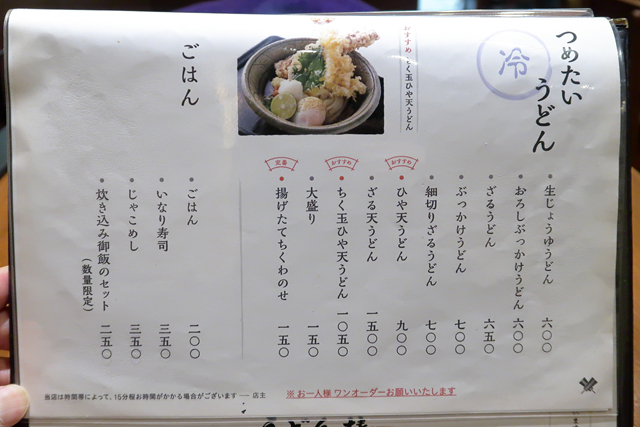 つめたい
うどん
冷
おすすめ ちく玉ひや天うどん
生じょうゆうどん 六〇〇
おろしぶっかけうどん 六〇〇
ざるうどん 六五〇
ぶっかけうどん 七〇〇
細切りざるうどん 七〇〇
おすすめ ひや天うどん 九〇〇
ざる天うどん 一五〇〇
おすすめ ちく玉ひや天うどん 一〇五〇
大盛り 一五〇
定番 揚げたてちくわのせ 一五〇
ごはん
ごはん 二〇〇
いなり寿司 三五〇
じゃこめし 三五〇
炊き込み御飯のセット 二五〇
(数量限定)
※ お一人様 ワンオーダーお願いいたします
当店は時間帯によって、15分程お時間がかかる場合がございます ── 店主